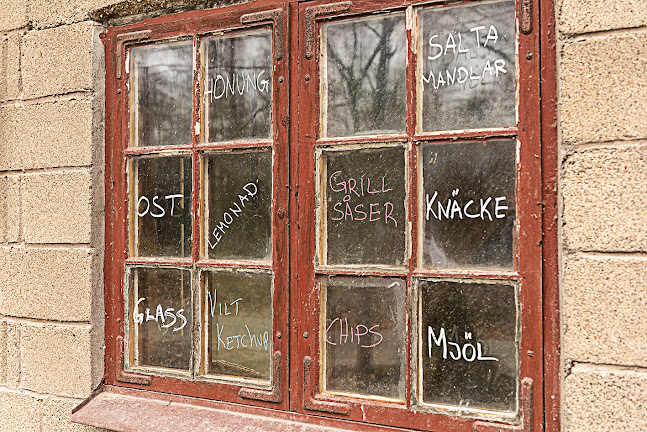 HONUNG
SALTA
MANDLAR
OST
LEMONAD
GRILL
SÅSER
KNÄCKE
GLASS
VILT
KETCHUP
CHIPS
MJÖL